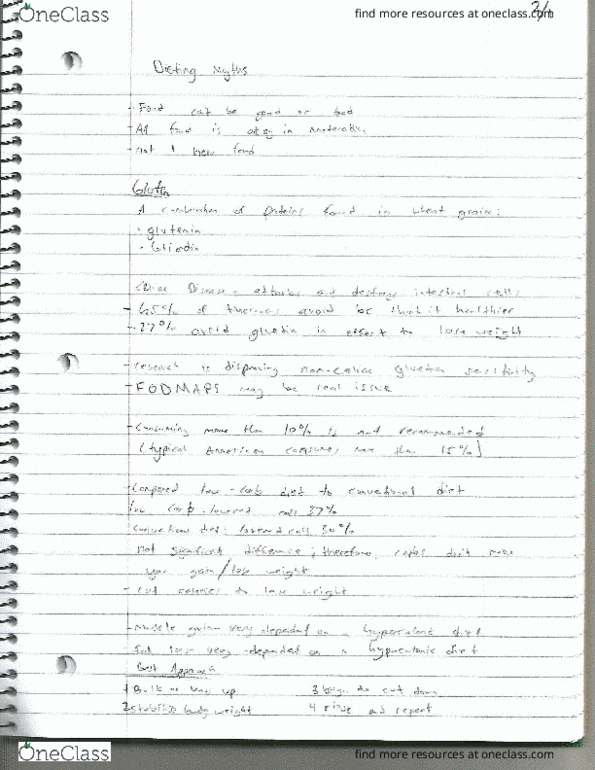 OneClass
find more resources at oneclass.com
2/1
Dieting Myths
- Food can't be good or bad
- All food is okay in moderation
- not 1 food
Gluten
A combination of proteins found in wheat grains:
- glutenin
- Gliadin
Celiac Disease; and destroys intestinal cells
- 65% of Americans avoid bc think it healthier
- 27% avoid glutin in effort to lose weight
- research is disproving non-celiac gluten sensitivity
- FODMAPS may be real issue
- Consuming more than 10% is not recommended
(typical American consumes more than 15%)
- Compared low-carb diet to conventional diet
low carb - lowered 27%
Conventional diet: lowered 30%
Not significant difference; therefore, carbs don't make
you gain/lose weight
- Cut calories to lose weight
- Muscle gain very depended on a hypercaloric diet
- Fat loss very depended on a hypocaloric diet
Best Approach
1 Bulk or up
3 begin to cut down
2 stabilize body weight
4 rinse and repeat
OneClass
find more resources at oneclass.com